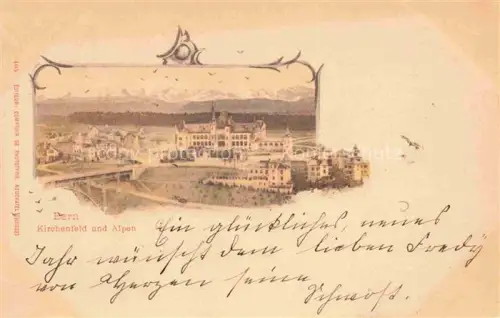 Bern
Kirchenfeld und Alpen
Ein glückliches, neues
Jahr wünscht dem lieben Fredy
von Herzen seine